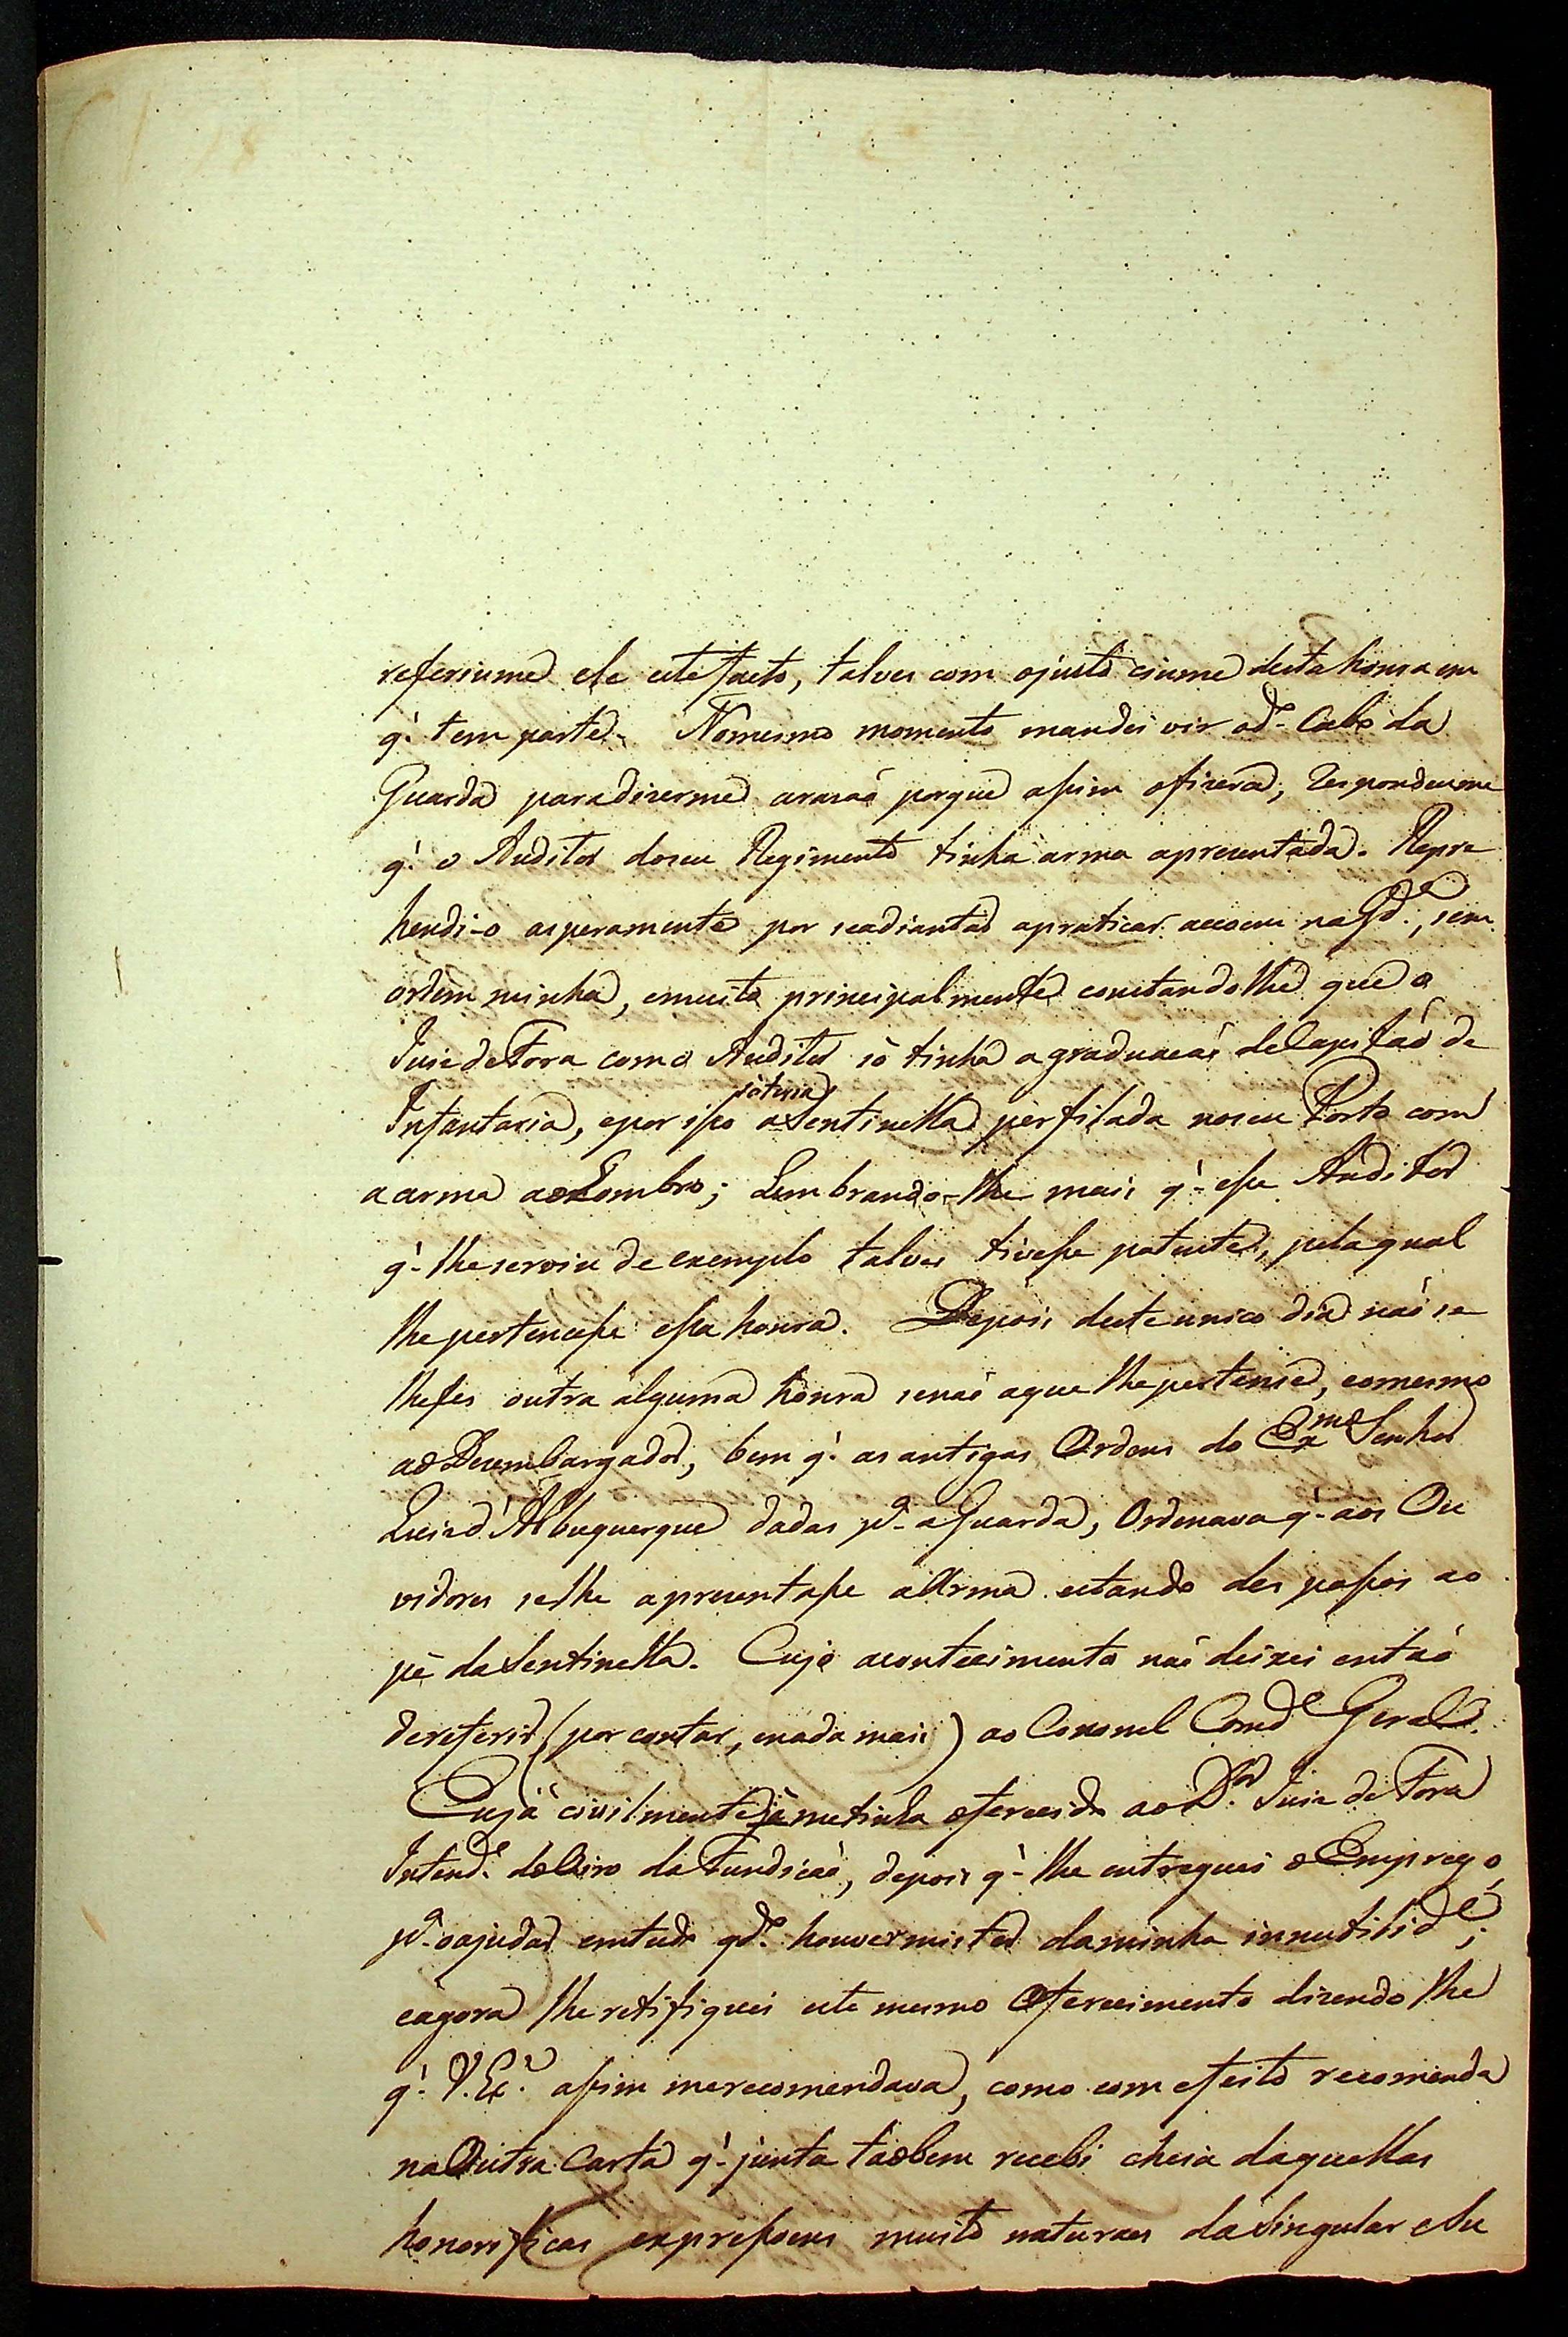 referiume ele este facto, talves com ojusto ciume desta honra em
q̀. tem parte. Nomesmo momento mandei vir od.º Cabo da
Guarda paradizerme arazaõ porque assim ofizera; Respondeume
q̀. o Auditor doseu Regimento tinha arma aprezentada. Repre
hendi-o asperamente por seadiantar apraticar accoens naG.dª, sem
ordem minha, emuito principalmente constandolhe que o
Juiz deFora como Auditor só tinha agraduacaõ deCapitaõ de
Infantaria, epor isso sòteria aSentinella perfilada noseu Posto com
aarma aoHombro; Lembrando-lhe mais q̀. esse Auditor
q̀. lheserviu de exemplo talves tivesse patente, pelaqual
lhepertencesse essa honra. Depois desteunico dia naõ se
lhefes outra alguma honra senaõ aque lhepertencia, eomesmo
aoDezembargador, bem q̀. as antigas Ordens do Ex.mo Senhor
Luiz d'Albuquerque dadas p.ª aGuarda, Ordenava q̀. aos Ou
vidores selhe aprezentasse aArma estando des passos ao
pé daSentinella. Cujo acontecimento naõ deixei entaõ
dereferir (por contar, enada mais) ao Coronel Comd.e Geral.
Eujá civilmente jà metinha oferecido aoD.or Juiz de Fora
Intend.e doOiro daFundicaõ, depois q̀. lhe entreguei oEmprego,
p.ª oajudar emtudo qd.º houvermister daminha innutilid.e;
eagora lheretifiquei este mesmo Oferecimento dizendolhe
q̀. V.Ex.ª assim merecomendava, como com efeito recomenda
naOutra Carta q̀. junta taobem recebi cheia daquellas
honorificas expressoens muito naturaes daSingular eSu